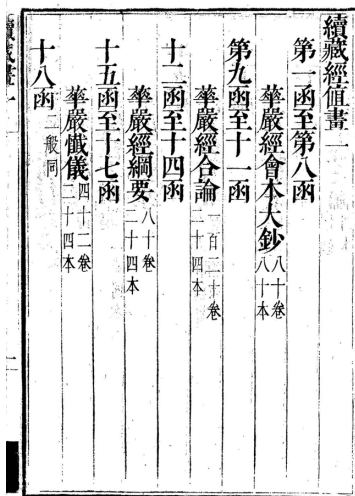 續藏經值畫一
第一函至第八函
華嚴經會本大鈔八十卷八十本
第九函至十一函
華嚴經合論一百二十卷二十四本
十二函至十四函
華嚴經綱要八十卷二十四本
十五函至十七函
華嚴懺儀四十二卷二十四本
十八函二般同